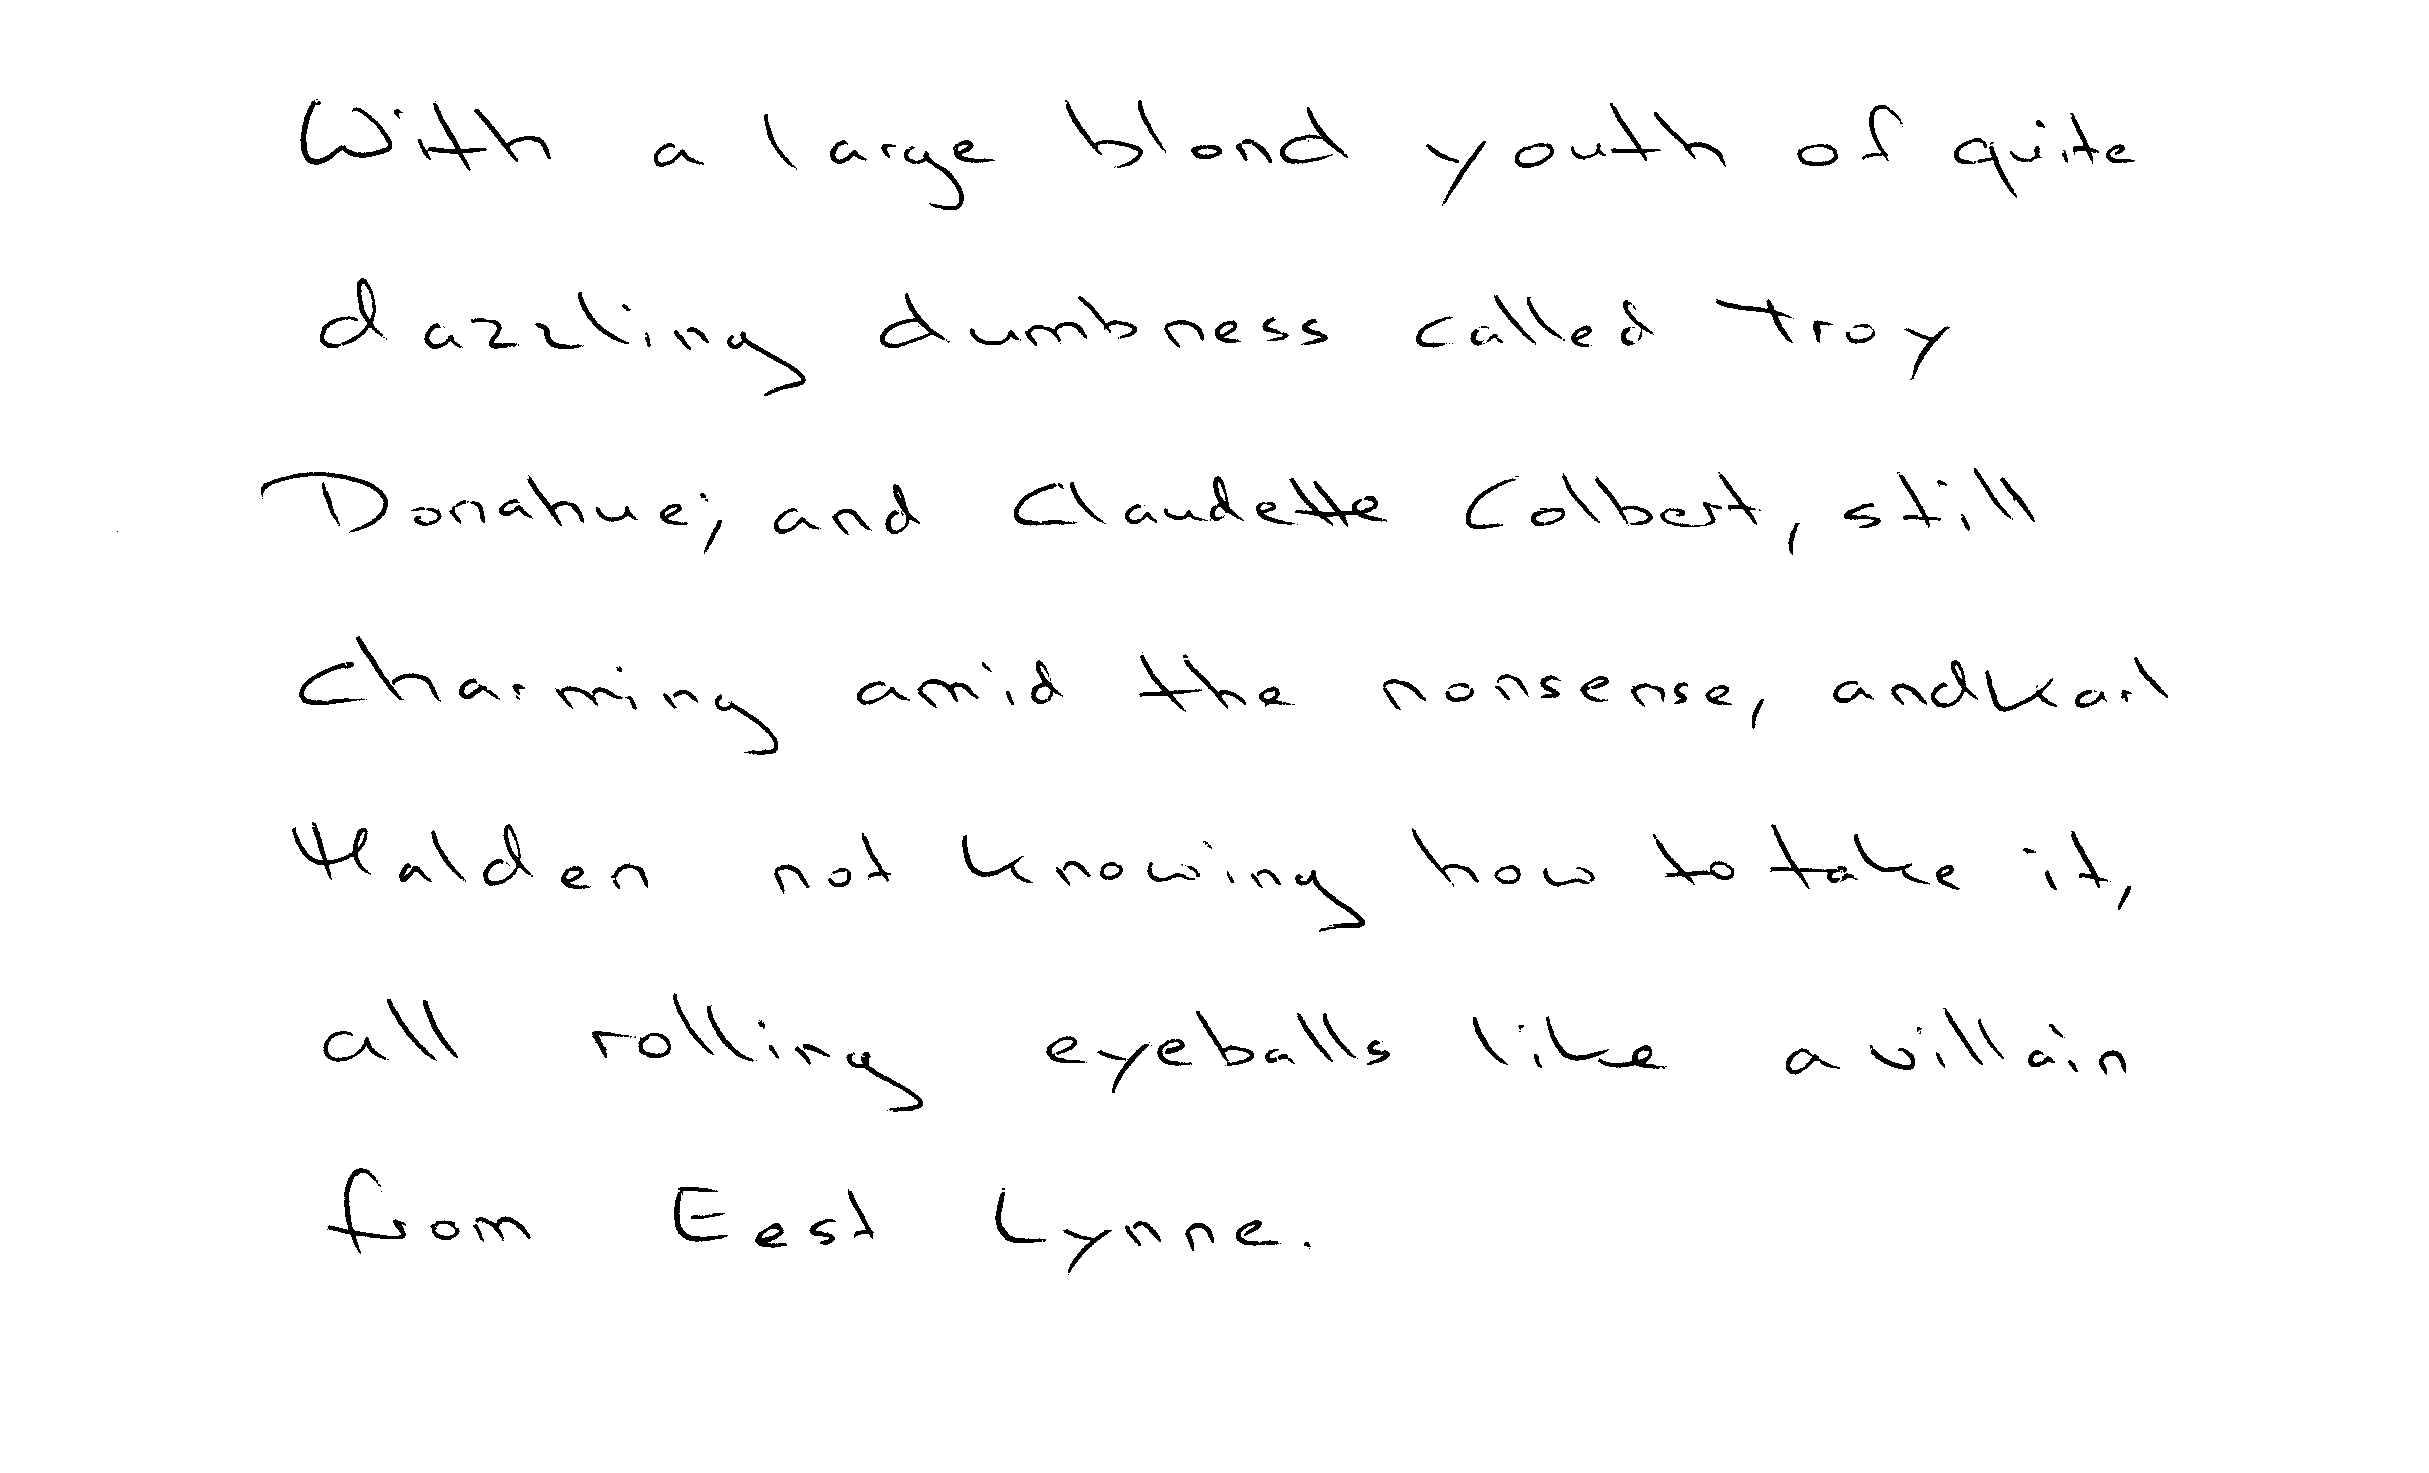 With a large blond youth of quite
dazzling dumbness called Troy
Donahue; and Claudette Colbert, still
charming amid the nonsense, and Karl
Malden not knowing how to take it,
all rolling eyeballs like a villain
from East Lynne.